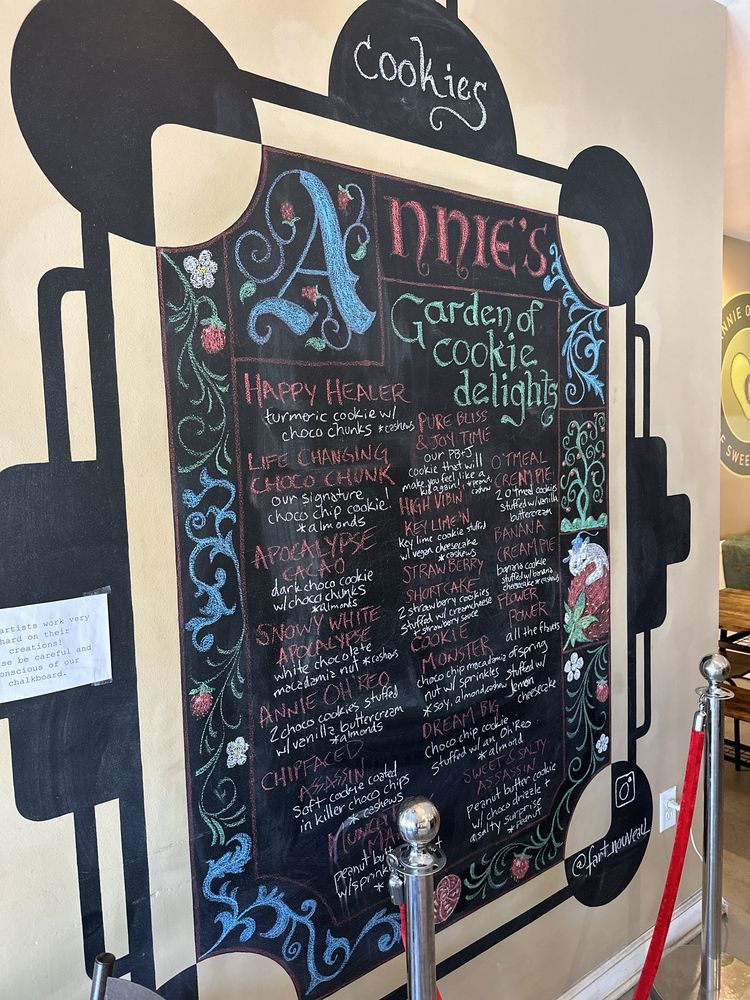 Cookies
ANNIE'S
Garden of
cookie
delights
HAPPY HEALER
turmeric cookie w/
choco chunks *cashews
LIFE CHANGING
CHOCO CHUNK
our signature
choco chip cookie!
*almonds
APOCALYPSE
CACAO
dark choco cookie
w/choco chunks
*almonds
SNOWY WHITE
APOCALYPSE
white chocolate
macadamia nut *cashews
ANNIE OH REO
2 choco cookies stuffed
w/vanilla buttercream
*almonds
CHIPFACED
ASSASSIN
soft cookie coated
in killer choco chips
*cashews
peanut
w/sprink
PURE BLISS
& JOY TIME
our PB+J
cookie that will
make you feel like a
kid again!
HIGH VIBIN'
KEY LIME'N
key lime cookie stuffed
w/ vegan cheesecake
*cashews
STRAWBERRY
SHORTCAKE
2 strawberry cookies
stuffed w/ creamcheese
+ strawberry sauce
COOKIE
MONSTER
choco chip macadamia
nut w/ sprinkles
*soy, almond, cashew
DREAM BIG
choco chip cookie
stuffed w/ an Oh Reo
*almond
SWEET & SALTY
ASSASSIN
peanut butter cookie
w/ choco drizzle +
a salty surprise
*peanut
O'TMEAL
CREAM PIE
2 o'tmeal cookies
stuffed w/vanilla
buttercream
BANANA
CREAM PIE
banana cookie
stuffed w/ banana
cheesecake *cashews
FLOWER
POWER
all the flavors
of spring
stuffed w/
lemon
cheesecake
@fart_nouveau
artists work very
hard on their
creations!
se be careful and
onscious of our
chalkboard.
NNIE O
E SWEE